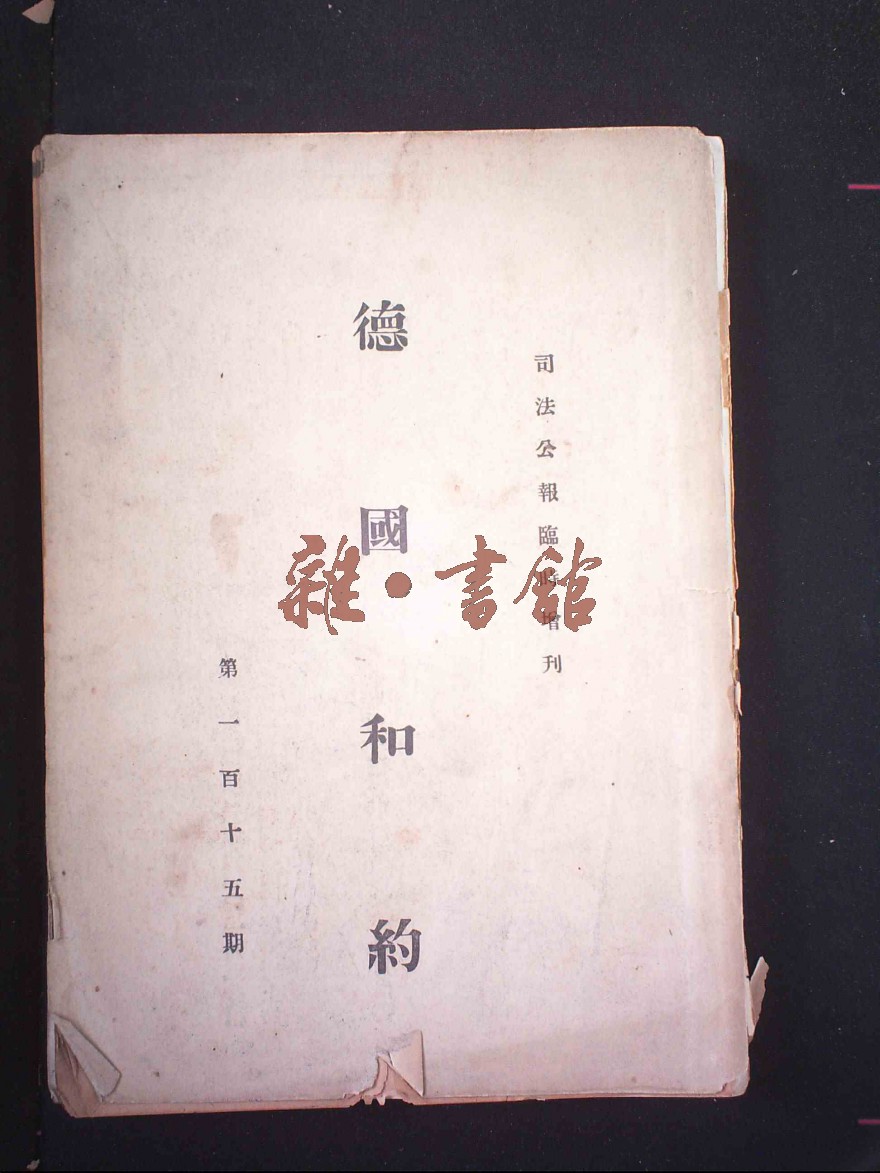 司法公報臨時增刊
德國和約
第一百十五期
雜·書館